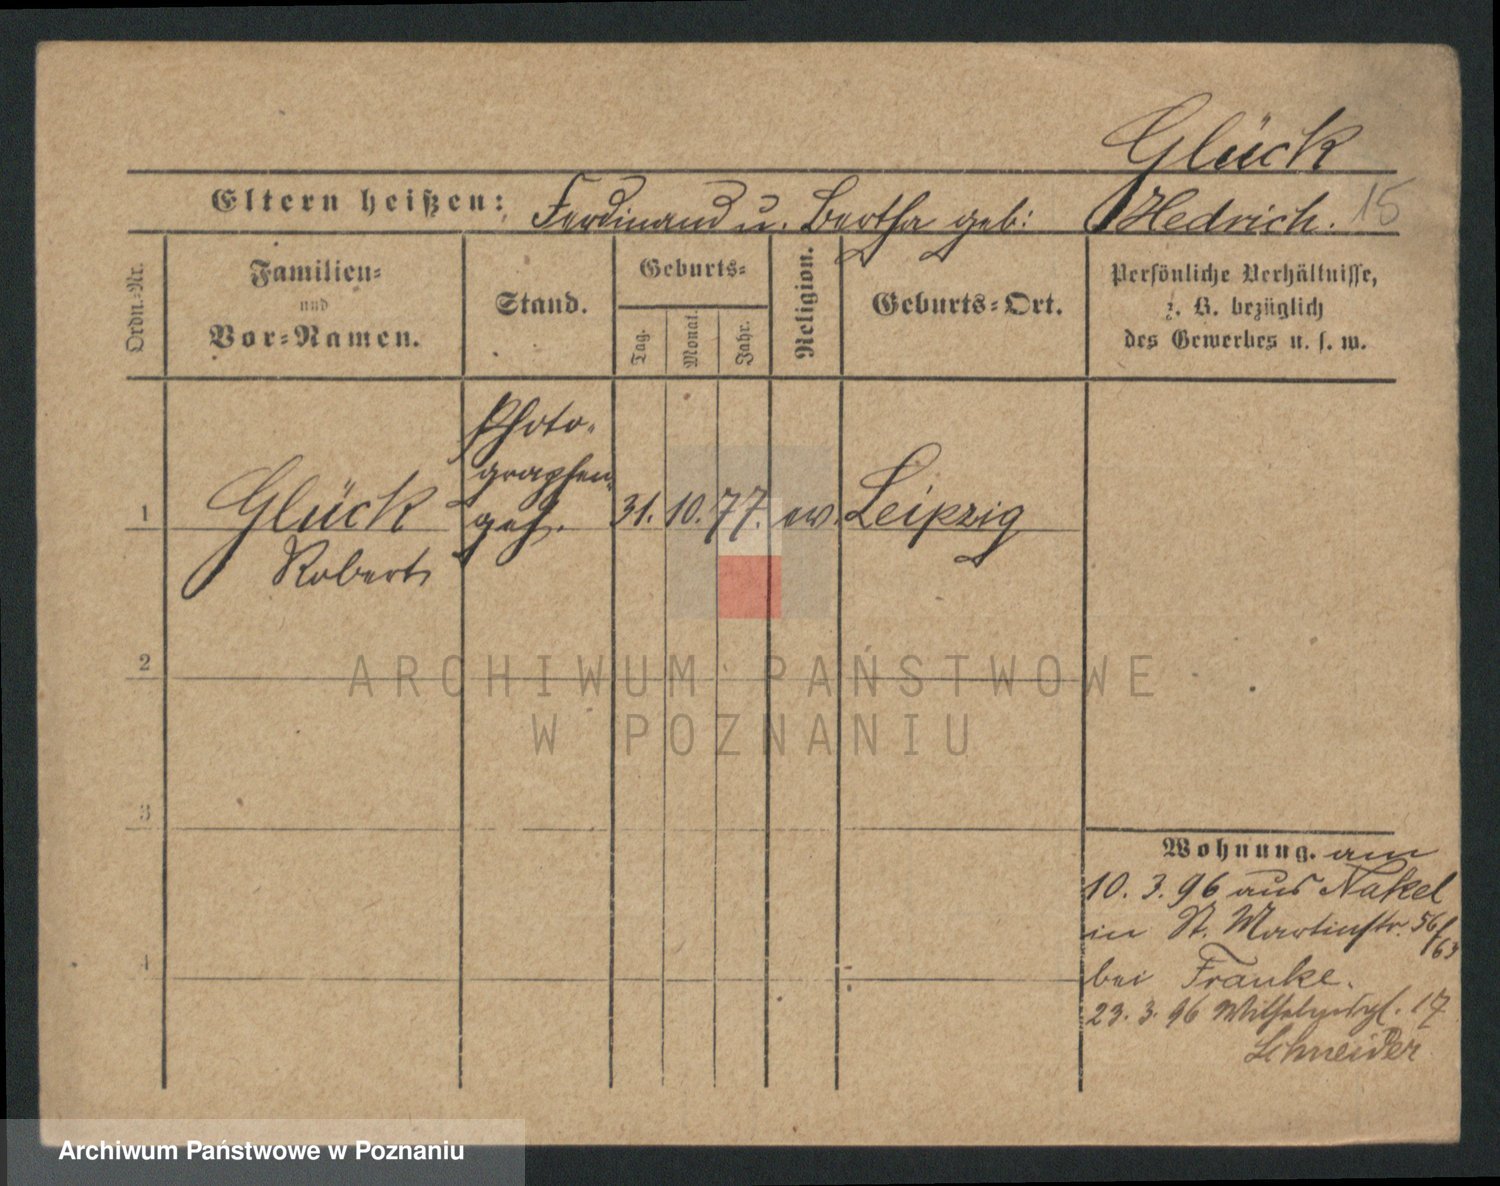 Glück
Eltern heißen: Ferdinand u. Bertha geb: Hedrich. 15
Ordn.-Nr.
Familien-
und
Vor-Namen.
Stand.
Geburts-
Tag.
Monat.
Jahr.
Religion.
Geburts-Ort.
Persönliche Verhältnisse,
z. B. bezüglich
des Gewerbes u. s. w.
1 Glück Photo-
graphen-
geh. 31. 10. 77. ev. Leipzig
Robert
2
3
4
ARCHIWUM PAŃSTWOWE
W POZNANIU
Wohnung. am
10. 3. 96 aus Nakel
in St. Martinstr. 56/63
bei Franke.
23. 3. 96 Wilhelmspl. 17
Schneider
Archiwum Państwowe w Poznaniu